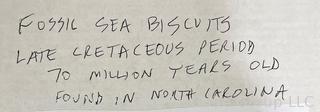 FOSSIL SEA BISCUITS
LATE CRETACEOUS PERIOD
70 MILLION YEARS OLD
FOUND IN NORTH CAROLINA